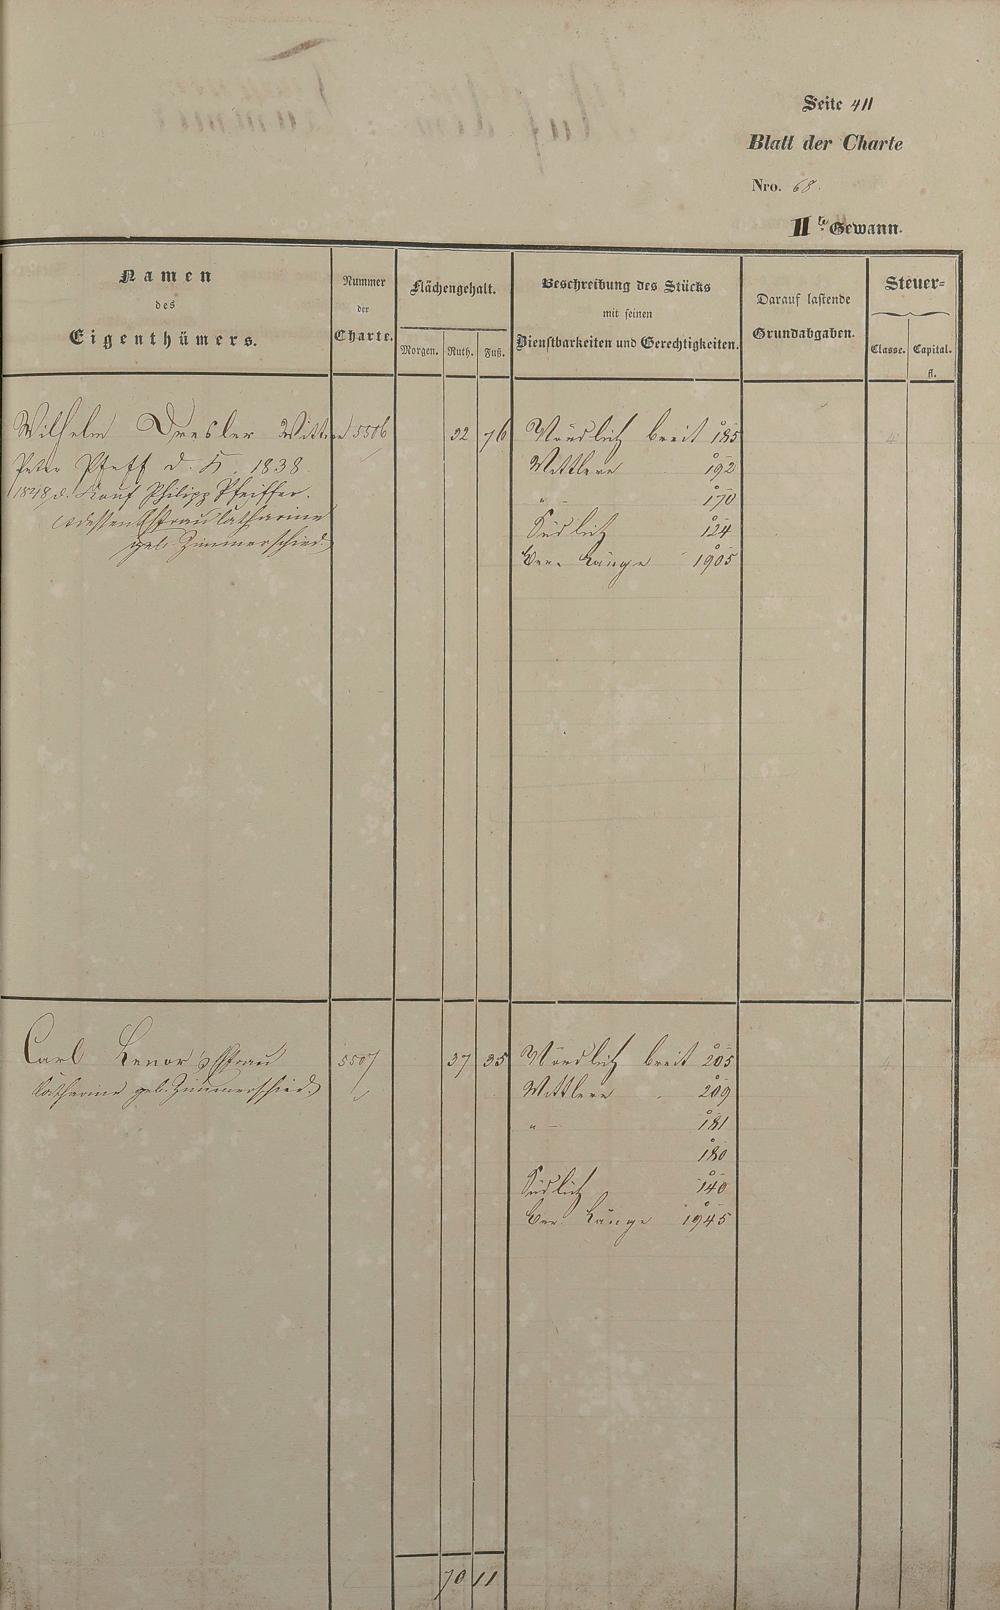 Seite 411
Blatt der Charte
Nro. 68.
II te Gewann.
Namen
des
Eigenthümers.
Nummer
der
Charte.
Flächengehalt.
Morgen. Ruth. Fuß.
Beschreibung des Stücks
mit seinen
Dienstbarkeiten und Gerechtigkeiten.
Darauf lastende
Grundabgaben.
Steuer=
Classe. Capital.
fl.
Wilhelm Dresler Wittwe 5506 32 76 Nördlich breit 185 4
Peter Pfaff d. K. 1838. Mittlere 192
1848 d. Kauf Philipp Pfeiffer. " 170
dessen Ehfrau Catharine Südlich 124
geb. Zimmerschied. Länge 1905
Carl Lenor Ehfrau 5507 37 35 Nördlich breit 205 4
Katharine geb. Zimmerschied Mittlere 209
" 181
180
Südlich 140
Länge 1945
70 11